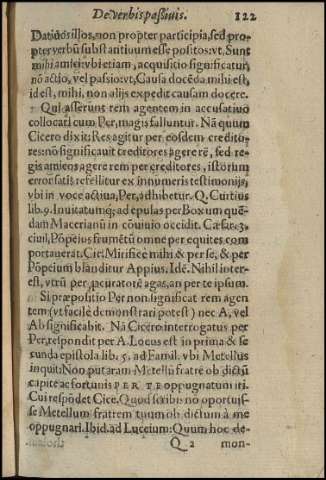 De verbis passiuis. 122
Datiuos illos, non propter participia, sed pro-
pter verbũ substantiuum esse positos: vt, Sunt
mihi amici vbi etiam, acquisitio significatur,
nõ actio, vel passio: vt, Causa docẽda mihi est,
id est, mihi, non alijs expedit causam docere.
Qui asserunt rem agentem in accusatiuo
collocari cum Per, magis falluntur. Nã quum
Cicero dixit: Res agitur per eosdem credito-
res: nõ significauit creditores agere rẽ, sed re-
gis amicos agere rem per creditores, istorum
error satis refellitur ex innumeris testimonijs,
vbi in voce actiua, Per, adhibetur. Q. Curtius
lib. 9. Inuitatumq́; ad epulas per Boxum quẽ-
dam Macerianũ in cõuiuio occidit. Cæsar. 3.
ciuil, Põpeius frumẽtũ omne per equites com
portauerat. Cic: Mirifice mihi & per se, & per
Põpeium blãditur Appius. Idẽ. Nihil inter-
est, vtrũ per ꝓcuratorẽ agas, an per te ipsum.
Si præpositio Per non significat rem agen
tem (vt facile demonstrari potest) nec A, vel
Ab significabit. Nã Cicero interrogatus per
Per, respondit per A. Locus est in prima & se
cunda epistola lib. 5. ad Famil. vbi Metellus
inquit: Non putaram Metellũ fratrẽ ob dictũ
capite ac fortunis PER TE oppugnatum iri.
Cui respõdet Cice. Quod scribis nõ oportuis-
se Metellum fratrem tuum ob dictum à me
oppugnari. Ibid. ad Luceium: Quum hoc de-
Q 2 mon-